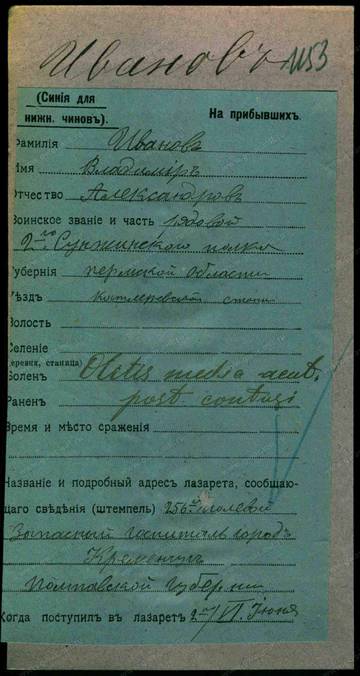 Ивановъ 1153
(Синія для
нижн. чиновъ).
На прибывшихъ.
Фамилія Ивановъ
Имя Владиміръ
Отчество Александровъ
Воинское званіе и часть рядовой
2го Сунжинскаго полка
Губернія области
Уѣздъ
Волость
Селеніе
(деревня, станица)
Боленъ Otitis media acut.
Раненъ post contusi
Время и мѣсто сраженія
Названіе и подробный адресъ лазарета, сообщаю-
щаго свѣдѣнія (штемпель) 256й полевой
Запасный госпиталь городъ
Кременчуг
Полтавской губерніи
Когда поступилъ въ лазаретъ 2го/VI. Іюня